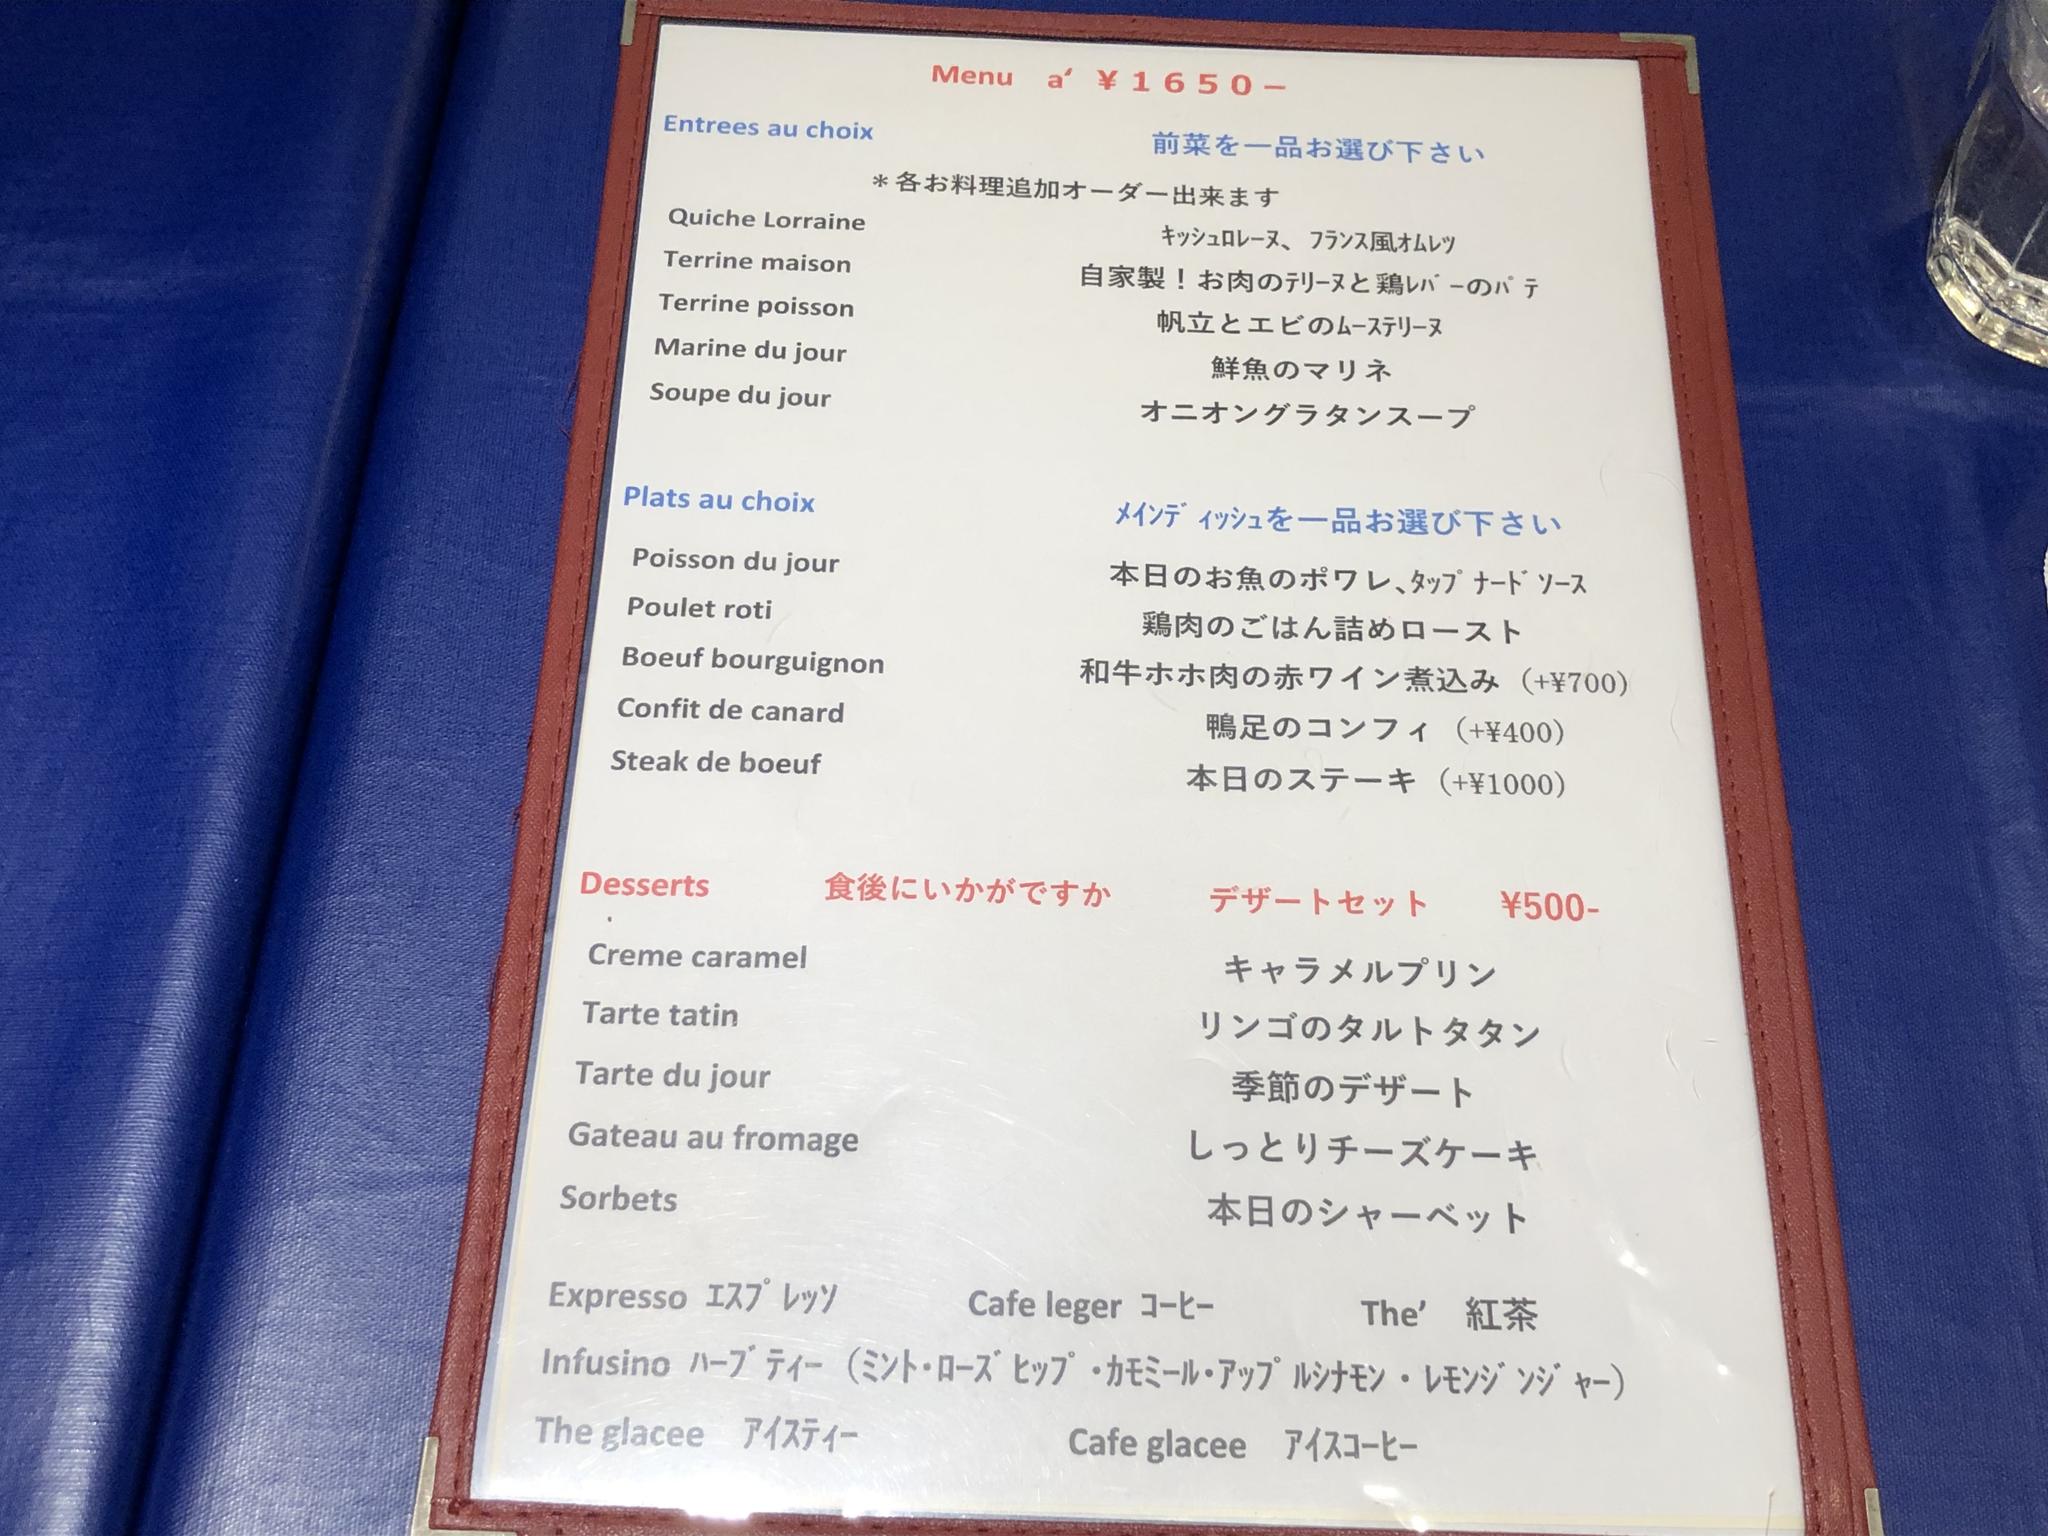 Menu a‘ ¥1650−
Entrees au choix 前菜を一品お選び下さい
＊各お料理追加オーダー出来ます
Quiche Lorraine ｷｯｼｭﾛﾚｰﾇ、ﾌﾗﾝｽ風ｵﾑﾚﾂ
Terrine maison 自家製！お肉のﾃﾘｰﾇと鶏ﾚﾊﾞｰのﾊﾟﾃ
Terrine poisson 帆立とエビのﾑｰｽﾃﾘｰﾇ
Marine du jour 鮮魚のマリネ
Soupe du jour オニオングラタンスープ
Plats au choix ﾒｲﾝﾃﾞｨｯｼｭを一品お選び下さい
Poisson du jour 本日のお魚のポワレ､ﾀｯﾌﾟﾅｰﾄﾞｿｰｽ
Poulet roti 鶏肉のごはん詰めロースト
Boeuf bourguignon 和牛ホホ肉の赤ワイン煮込み（+¥700）
Confit de canard 鴨足のコンフィ（+¥400）
Steak de boeuf 本日のステーキ（+¥1000）
Desserts 食後にいかがですか デザートセット ¥500-
Creme caramel キャラメルプリン
Tarte tatin リンゴのタルトタタン
Tarte du jour 季節のデザート
Gateau au fromage しっとりチーズケーキ
Sorbets 本日のシャーベット
Expresso ｴｽﾌﾟﾚｯｿ Cafe leger ｺｰﾋｰ The’ 紅茶
Infusino ﾊｰﾌﾞﾃｨｰ（ﾐﾝﾄ･ﾛｰｽﾞﾋｯﾌﾟ･ｶﾓﾐｰﾙ･ｱｯﾌﾟﾙｼﾅﾓﾝ・ﾚﾓﾝｼﾞﾝｼﾞｬｰ）
The glacee ｱｲｽﾃｨｰ Cafe glacee ｱｲｽｺｰﾋｰ